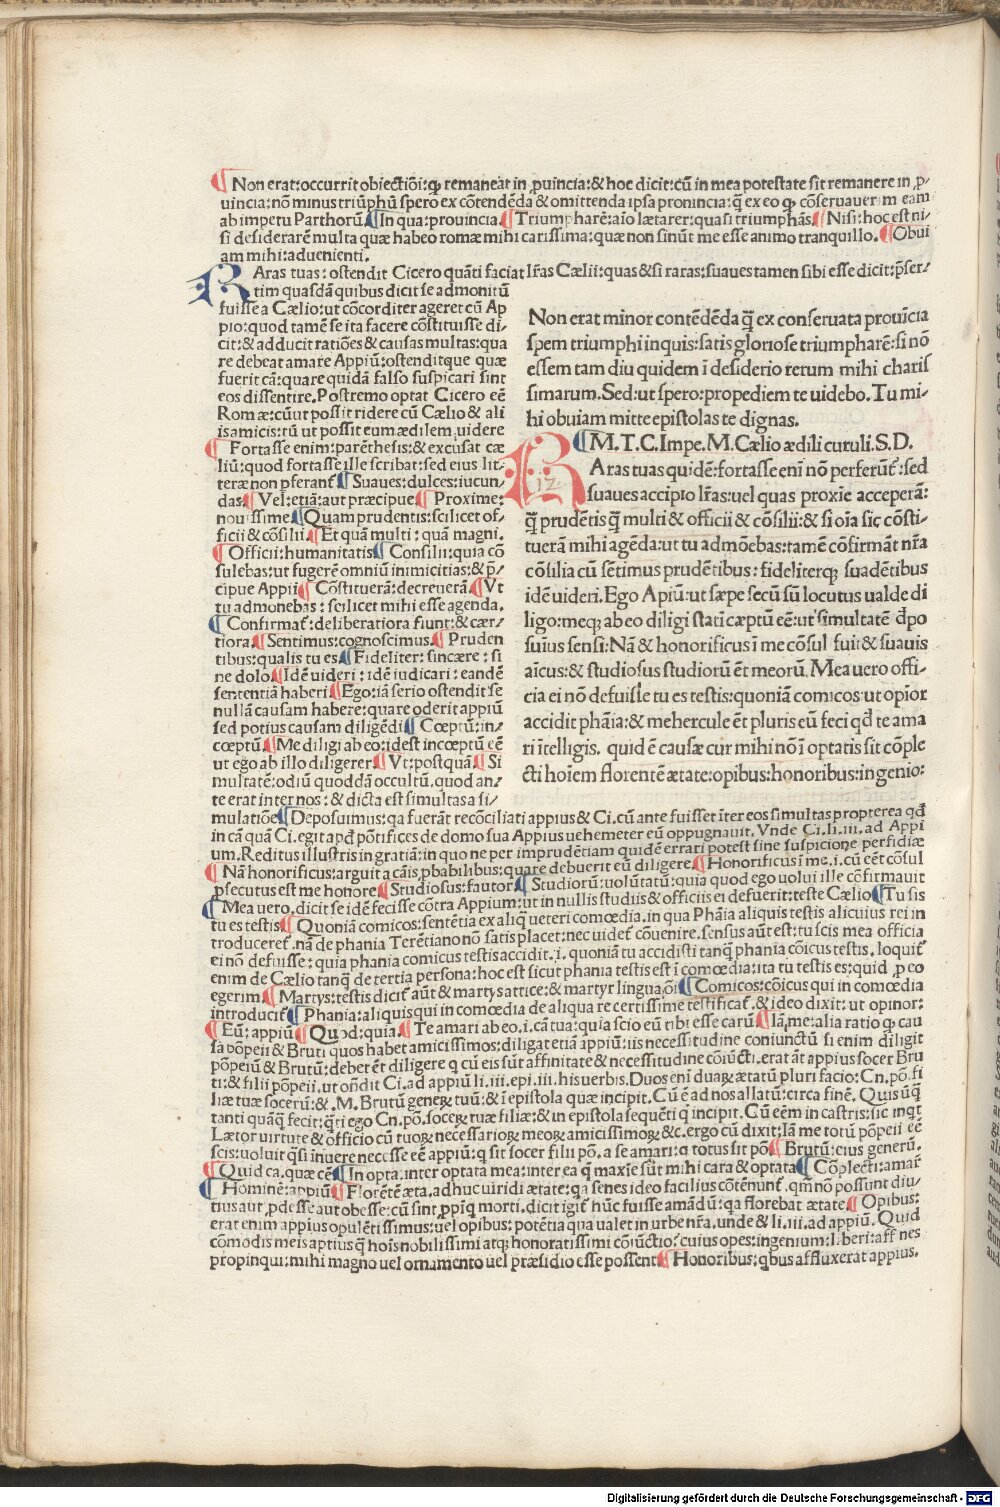 ¶Non erat: occurrit obiectiõi: ꝙ remaneat in ꝓuincia: & hoc dicit: cũ in mea potestate sit remanere in ꝓ-
uincia: nõ minus triũphũ spero ex cõtendẽda & omittenda ipsa prouincia: q̃ ex eo ꝙ cõseruauerim eam
ab impetu Parthorũ. ¶In qua: prouincia. ¶Triumphare: aio lætarer: quasi triumphãs. ¶Nisi: hoc est ni-
si desiderarem multa quæ habeo romæ mihi carissima: quæ non sinũt me esse animo tranquillo. ¶Obui
am mihi: aduenienti.
RAras tuas: ostendit Cicero quãti faciat lr̃as Cælii: quas & si raras: suaues tamen sibi esse dicit: p̃ser-
tim quasdã quibus dicit se admonitũ
fuisse a Cælio: ut cõcorditer ageret cũ Ap
pio: quod tamẽ se ita facere cõstituisse di-
cit: & adducit ratiões & causas multas: qua
re debeat amare Appiũ: ostenditque quæ
fuerit cã: quare quidã falso suspicari sint
eos dissentire. Postremo optat Cicero eẽ
Romæ: cũ ut possit ridere cũ Cælio & ali
is amicis: tũ ut possit eum ædilem uidere
¶Fortasse enim: parẽthesis: & excusat cæ
liũ: quod fortasse ille scribat: sed eius lit-
teræ non pferant̃ ¶Suaues: dulces: iucun-
das. ¶Vel: etiã: aut præcipue ¶Proxime:
nouissime. ¶Quam prudentis: scilicet of-
ficii & cõsilii. ¶Et quã multi: quã magni.
¶Officii: humanitatis ¶Consilii: quia cõ
sulebas: ut fugerẽ omniũ inimicitias: & p̃-
cipue Appii ¶Cõstituerã: decreuerã. ¶Vt
tu admonebas: scilicet mihi esse agenda.
¶Confirmat̃: deliberatiora fiunt: & cær-
tiora. ¶Sentimus: cognoscimus. ¶Pruden
tibus: qualis tu es. ¶Fideliter: sincære: si
ne dolo. ¶Idẽ uideri: idẽ iudicari: eandẽ
sententiã haberi. ¶Ego: iã serio ostendit se
nullã causam habere: quare oderit appiũ
sed potius causam diligẽdi ¶Cœptũ: in-
cœptũ. ¶Me diligi ab eo: idest incœptũ eẽ
ut ego ab illo diligerer. ¶Vt: postquã. ¶Si
multatẽ: odiũ quoddã occultũ. quod an-
te erat inter nos: & dicta est simultas a si-
Non erat minor contẽdẽda q̃ ex conseruata prouĩcia
spem triumphi inquis: satis gloriose triumpharẽ: si nõ
essem tam diu quidem ĩ desiderio rerum mihi charis
simarum. Sed: ut spero: propediem te uidebo. Tu mi-
hi obuiam mitte epistolas te dignas.
¶M. T. C. Impe. M. Cælio ædili curuli. S. D.
RAras tuas quidẽ: fortasse eni nõ perferũt̃: sed
17
suaues accipio lr̃as: uel quas proxie acceperã:
q̃ prudẽtis q̃ multi & officii & cõsilii: & si oĩa sic cõsti-
tuerã mihi agẽda: ut tu admõebas: tamẽ cõfirmãt nr̃a
cõsilia cũ sẽtimus prudẽtibus: fideliterq; suadẽtibus
idẽ uideri. Ego Apiũ: ut sæpe secũ sũ locutus ualde di
ligo: meq; ab eo diligi statĩ cæptũ eẽ: ut simultatẽ dp̃o
suĩus sensi: Nã & honorificus ĩ me cõsul fuit: & suauis
aĩcus: & studiosus studiorũ ẽt meorũ. Mea uero offi-
cia ei nõ defuisse tu es testis: quoniã comicos ut opĩor
accidit phãia: & mehercule ẽt pluris eũ feci qd̃ te ama
ri ĩtelligis. quid ẽ causæ cur mihi nõ ĩ optatis sit cõple
cti hoĩem florentẽ ætate: opibus: honoribus: ingenio:
mulatiõe ¶Deposuimus: qa fuerãt recõciliati appius & Ci. cũ ante fuisset ĩter eos simultas propterea qd̃
in cã quã Ci. egit apd̃ põtifices de domo sua Appius uehemeter eũ oppugnauit. Vnde Ci. li. iii. ad Appi
um. Reditus illustris in gratiã: in quo ne per imprudẽtiam quidẽ errari potest sine suspicione perfidiæ
¶Nã honorificus: arguit a cãis ꝓbabilibus: quare debuerit eũ diligere. ¶Honorificus ĩ me. i. cũ eẽt cõsul
ꝓsecutus est me honore ¶Studiosus: fautor. ¶Studiorũ: uolũtatũ: quia quod ego uolui ille cõfirmauit
¶Mea uero. dicit se idẽ fecisse cõtra Appium: ut in nullis studiis & officiis ei defuerit: teste Cælio ¶Tu sis
tu es testis ¶Quoniã comicos: sentẽtia ex aliq̃ ueteri comœdia. in qua Phãia aliquis testis alicuius rei in
troduceret̃. nã de phania Terẽtiano nõ satis placet: nec uidet̃ cõuenire. sensus aũt est: tu scis mea officia
ei nõ defuisse: quia phania comicus testis accidit. i. quoniã tu accidisti tanq̃ phania cõicus testis. loquit̃
enim de Cælio tanq̃ de tertia persona: hoc est sicut phania testis est ĩ comœdia: ita tu testis es: quid ꝓ eo
egerim ¶Martys: testis dicit̃ aũt & martys attice: & martyr lingua cõi ¶Comicos: cõicus qui in comœdia
introducit̃ ¶Phania: aliquis qui in comœdia de aliqua re certissime testificat̃. & ideo dixit: ut opinor:
¶Eũ: appiũ ¶Quod: quia. ¶Te amari ab eo. i. cã tua: quia scio eũ tibi esse carũ ¶Iã me: alia ratio ꝙ cau
sa põpeii & Bruti quos habet amicissimos: diligat etiã appiũ: iis necessitudine coniunctũ si enim diligit
põpeiũ & Brutũ: deber&̃t diligere q cũ eis sũt affinitate & necessitudine cõiũcti. erat ãt appius socer Bru
ti: & filii põpeii. ut oñdit Ci. ad appiũ li. iii. epi. iii. his uerbis. Duos eni duaꝝ ætatũ pluri facio: Cn. põ. fi
liæ tuæ socerũ: &. M. Brutũ generꝝ tuũ: & ĩ epistola quæ incipit. Cũ ẽ ad nos allatũ: circa finẽ. Quis ũq̃
tanti quãq̃ fecit: q̃ti ego Cn. põ. socerꝝ tuæ filiæ: & in epistola sequẽti q̃ incipit. Cũ eẽm in castris: sic inqt
Lætor uirtute & officio cũ tuoꝝ necessarioꝝ meoꝝ amicissimoꝝ &c. ergo cũ dixit: Iã me totũ põpeii eẽ
scis: uoluit q̃si ĩnuere necesse eẽ appiũ: q̃ sit socer filii põ. a se amari: q̃ totus sit põ ¶Brutũ: eius generũ.
¶Quid ca. quæ cẽ ¶In opta. inter optata mea: inter ea q̃ maxĩe sũt mihi cara & optata ¶Cõplecti: amar̃
¶Hominẽ: appiũ ¶Florẽtẽ æta. adhuc uiridi ætate: qa senes ideo facilius cõtẽnunt̃. qm̃ nõ possunt diu-
tius aut ꝓdesse aut obesse: cũ sint ꝓpĩq̃ morti. dicit igit̃ hũc fuisse amãdũ: qa florebat ætate. ¶Opibus:
erat enim appius opulẽtissimus: uel opibus: potẽtia qua ualet in urbe nr̃a. unde & li. iii. ad appiũ. Quid
cõmodis meis aptius q̃ hois nobilissimi atq; honoratissimi cõiũctio? cuius opes: ingenium: liberi: affines
propinqui: mihi magno uel ornamento uel præsidio esse possent ¶Honoribus: qbus affluxerat appius.
Digitalisierung gefördert durch die Deutsche Forschungsgemeinschaft - DFG